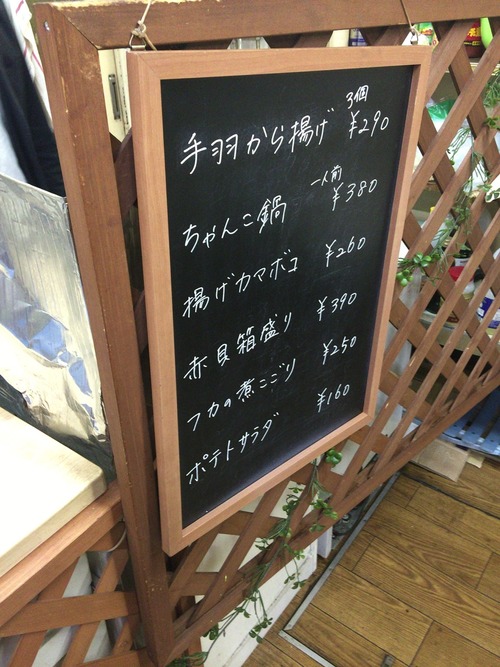 手羽から揚げ 3個 ¥290
ちゃんこ鍋 一人前 ¥380
揚げカマボコ ¥260
赤貝箱盛り ¥390
フカの煮こごり ¥250
ポテトサラダ ¥160